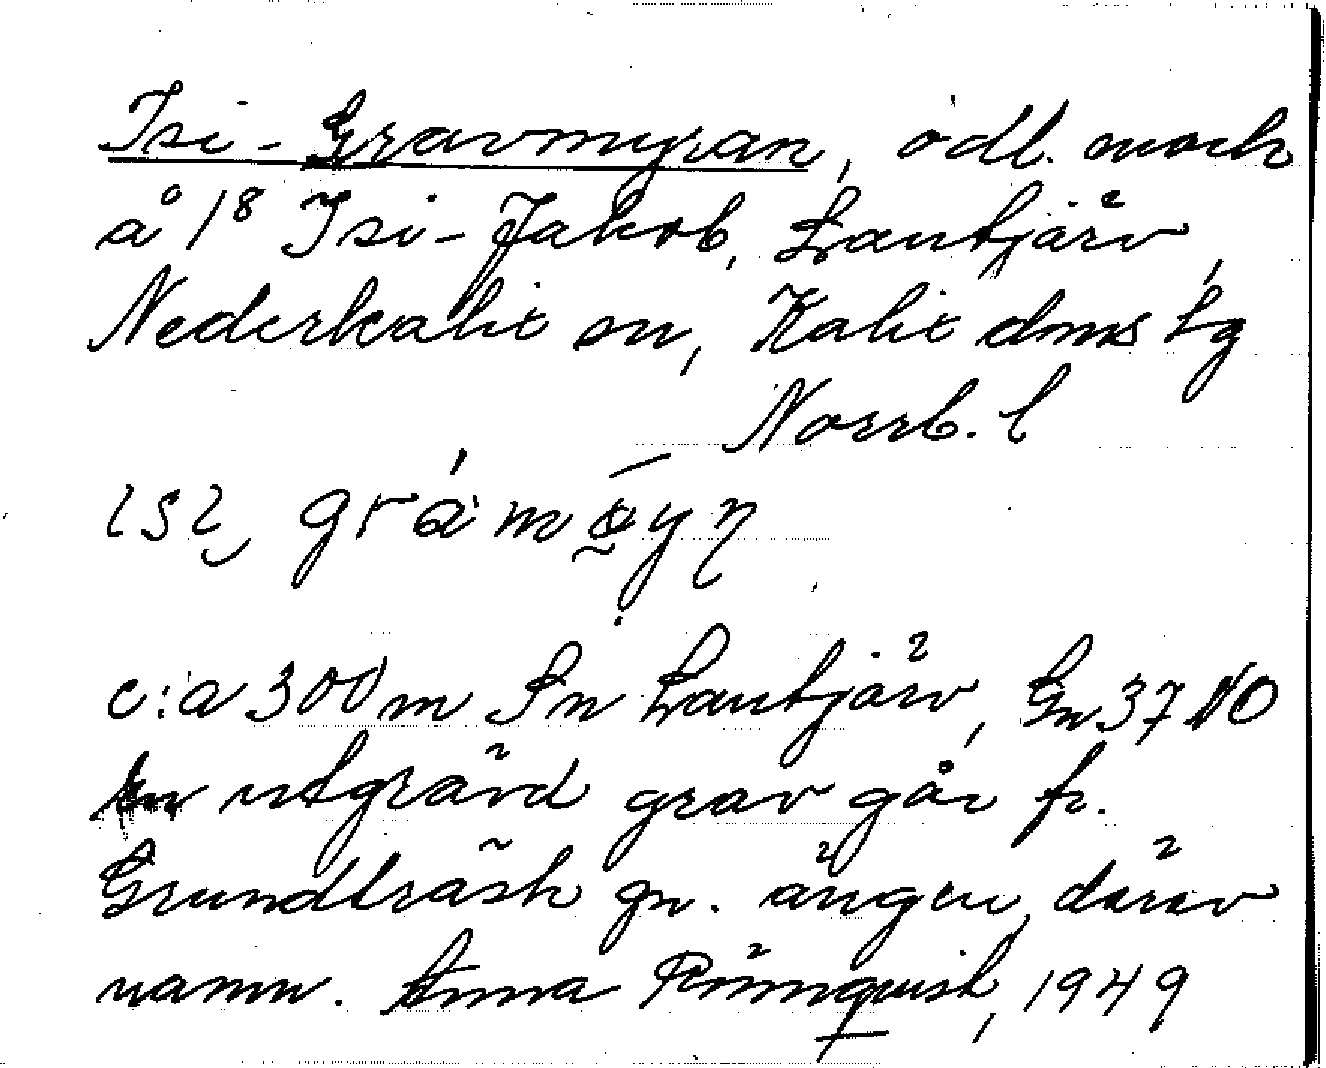 Isi-Gravmyran, odl. mark
å 1⁸ Isi-Jakob, Lantjärv,
Nederkalix sn, Kalix dms tg
Norrb. l
c:a 300 m Sn Lantjärv, Gn 37 NO
En utgrävd grav går fr.
Grundträsk gn. ängen, därav
namn. Anna Rönnquist, 1949